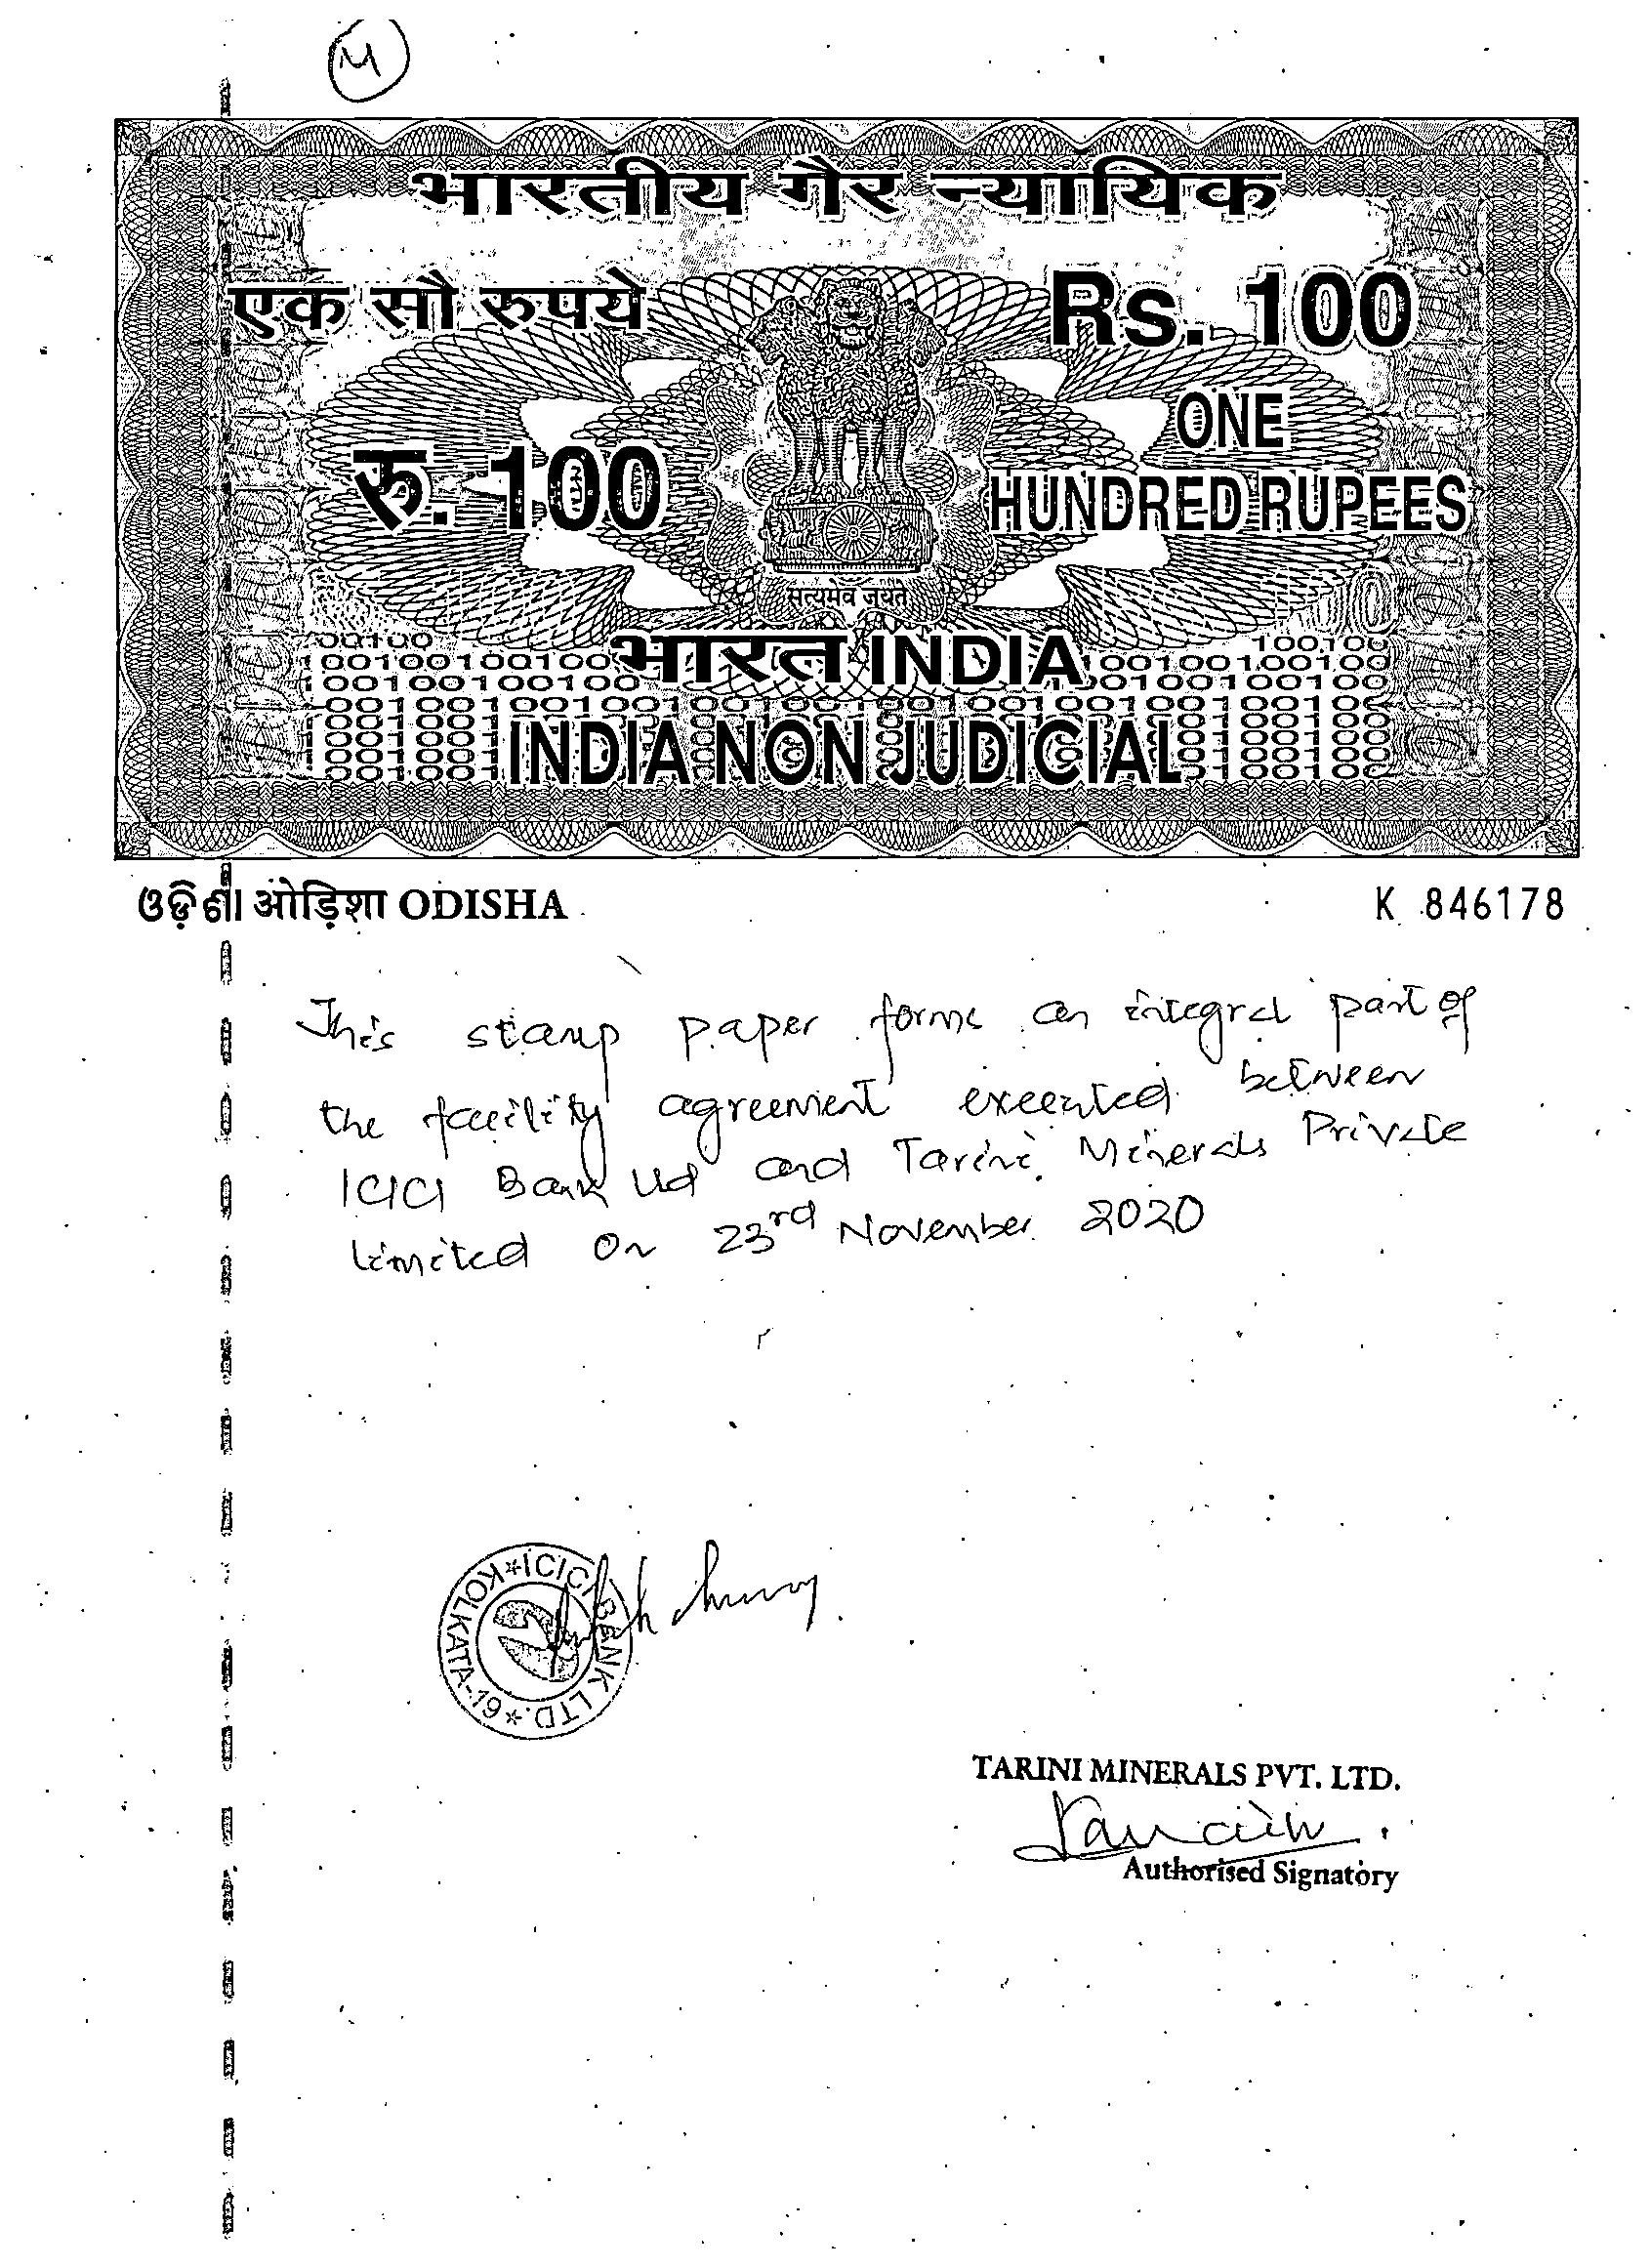 M
भारतीय गैर न्यायिक
एक सौ रुपये
Rs. 100
रु. 100
ONE
HUNDRED RUPEES
सत्यमेव जयते
भारत INDIA
INDIA NON JUDICIAL
ଓଡ଼ିଶା ओड़िशा ODISHA
K 846178
This stamp paper forms an integral part of
the facility agreement executed between
ICICI Bank Ltd and Tarini Minerals Private
Limited on 23rd November 2020
ICICI BANK LTD. KOLKATA-19
TARINI MINERALS PVT. LTD.
Authorised Signatory